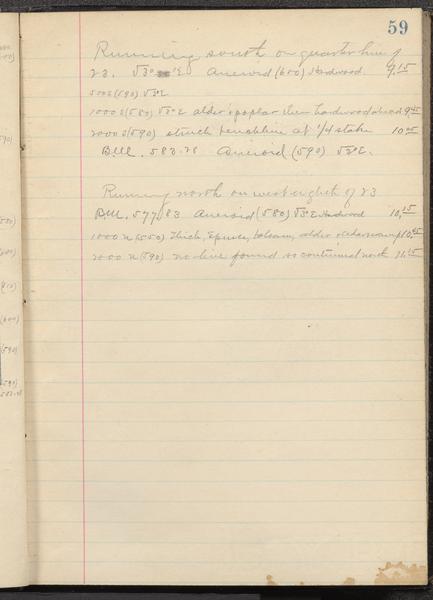 59
Running south on quarter line of
23. V3° E Aneroid (600) Hardwood. 9,15
500 S (590) V3°E
1000 S (580) V3°E alder & poplar then hardwood ahead 9,45
2000 S (590) struck bench line at 1/4 stake 10,05
B.M. 583.78 Aneroid (590) V3°E.
Running north on west eighth of 23
B.M. 577.83 Aneroid (580) V3°E Hardwood 10,15
1000 N (550) Thick, Spruce, balsam, alder & cedar swamp 10,45
2000 N (590) no line found so continued north 11,15
(600)
590)
(580)
(600)
(610)
(600)
(590)
(590)
583.78